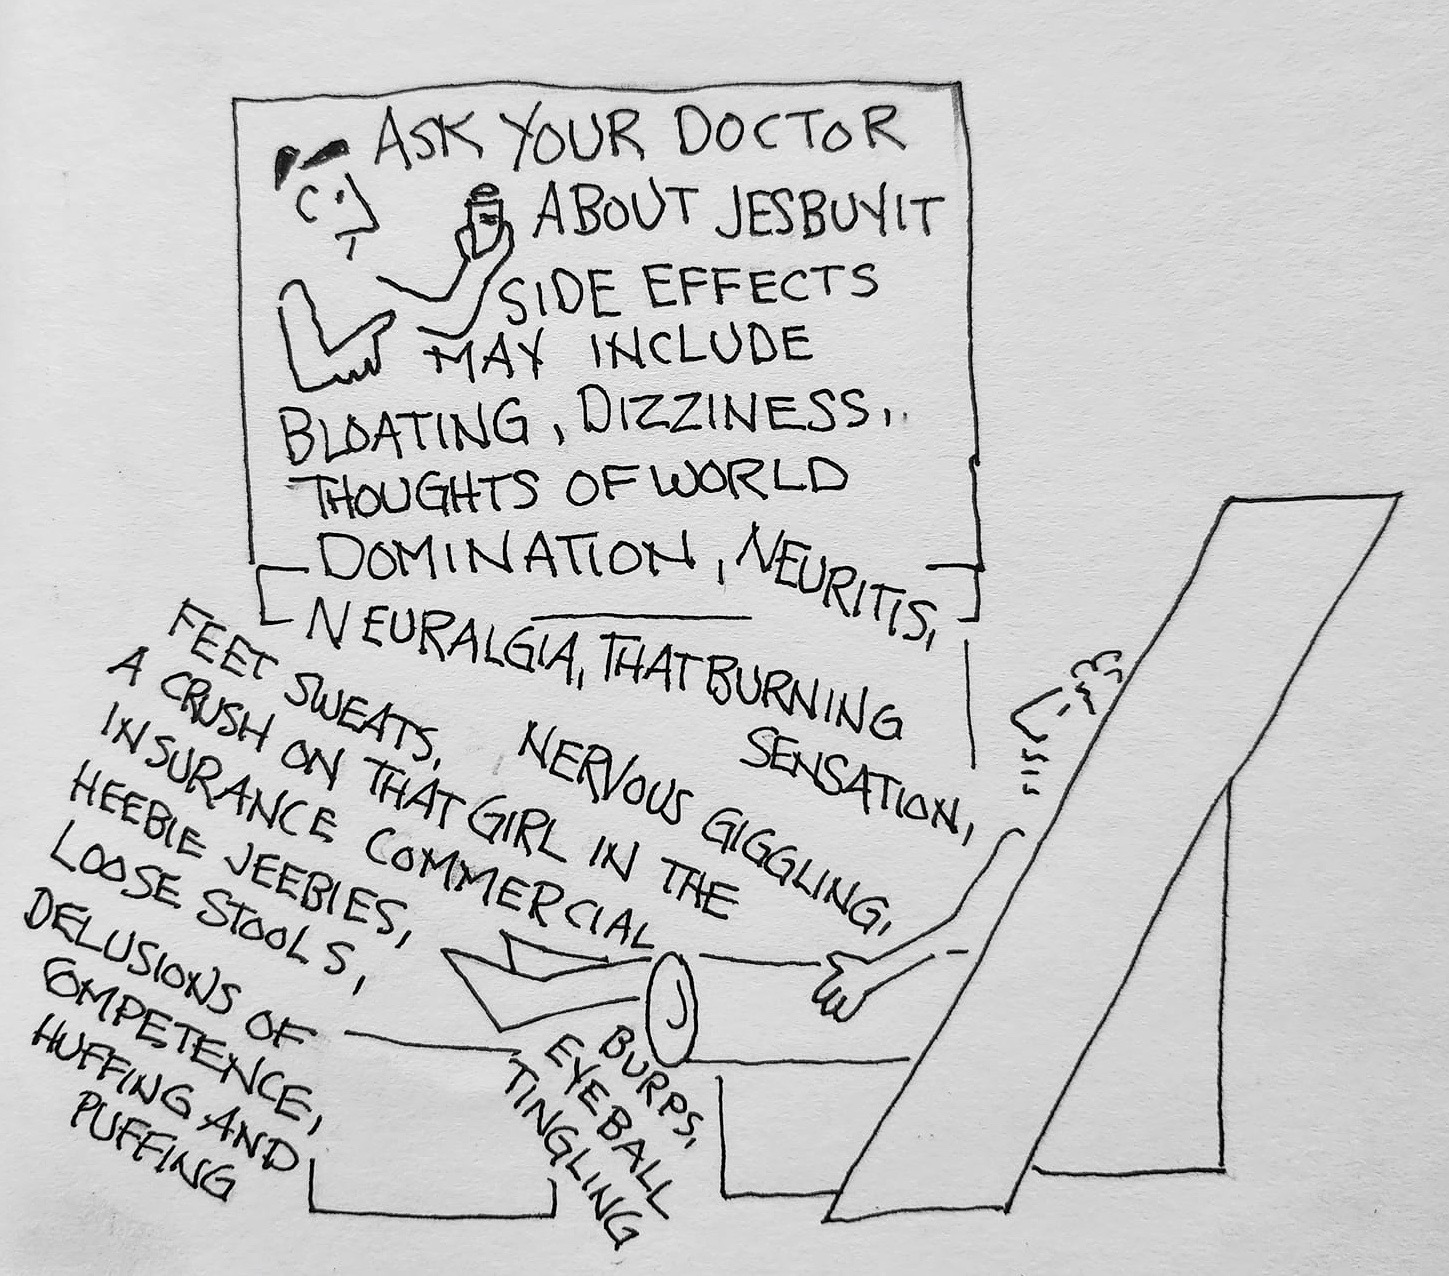 ASK YOUR DOCTOR
ABOUT JESBUYIT
SIDE EFFECTS
MAY INCLUDE
BLOATING, DIZZINESS,
THOUGHTS OF WORLD
DOMINATION, NEURITIS,
NEURALGIA, THAT BURNING
SENSATION,
NERVOUS GIGGLING,
FEET SWEATS,
A CRUSH ON THAT GIRL IN THE
INSURANCE COMMERCIAL
HEEBIE JEEBIES,
LOOSE STOOLS,
DELUSIONS OF
COMPETENCE,
HUFFING AND
PUFFING
BURPS,
EYEBALL
TINGLING